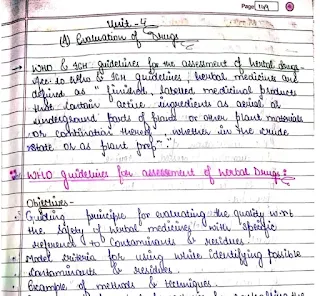 Page No.
Unit - 4
(A) Evaluation of Drugs
→ WHO & ICH guidelines for the assessment of herbal drugs -
Acc. to WHO & ICH guidelines, herbal medicine are
defined as " finished, labeled medicinal products
that contain active ingredients as aerial or
underground parts of plant or other plant materials
or combination thereof, whether in the crude
state or as plant prepn "
WHO guidelines for assessment of herbal Drugs :
Objectives -
Guiding principle for evaluating the quality w.r.t
the safety of herbal medicines with specific
reference to contaminants & residues.
Model criteria for using while identifying possible
contaminants & residues.
Example of methods & techniques.